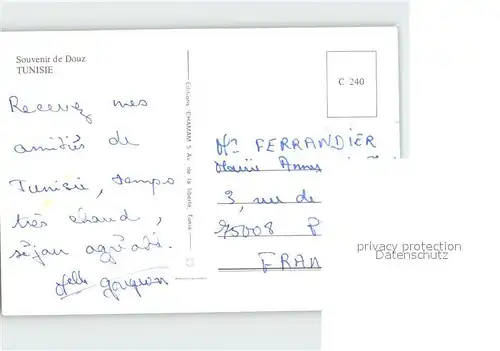 Souvenir de Douz
TUNISIE
C 240
Recevez mes
amitiés de
Tunisie, temps
très chaud,
séjour agréable.
Editions CHAMAM 5 Av. de la liberté, Tunis
Mr FERRANDIER
Mairie Annexe
3, rue de
75008 P
FRAN
privacy protection
Datenschutz